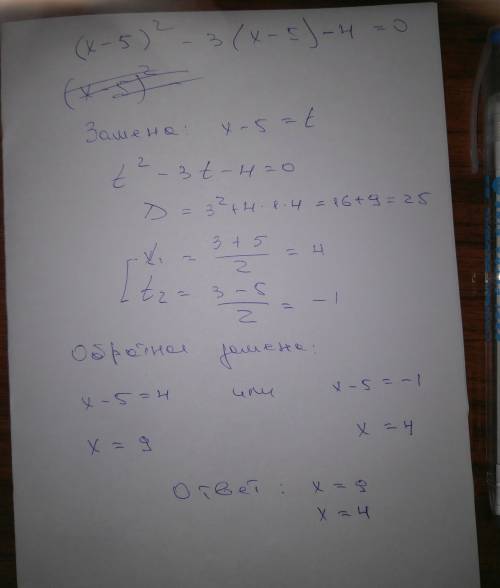 (x-5)² - 3(x-5) - 4 = 0
Замена: x-5 = t
t² - 3t - 4 = 0
D = 3² + 4·1·4 = 16+9 = 25
t₁ = (3+5)/2 = 4
t₂ = (3-5)/2 = -1
Обратная замена:
x-5 = 4 или x-5 = -1
x = 9 x = 4
Ответ: x = 9
x = 4